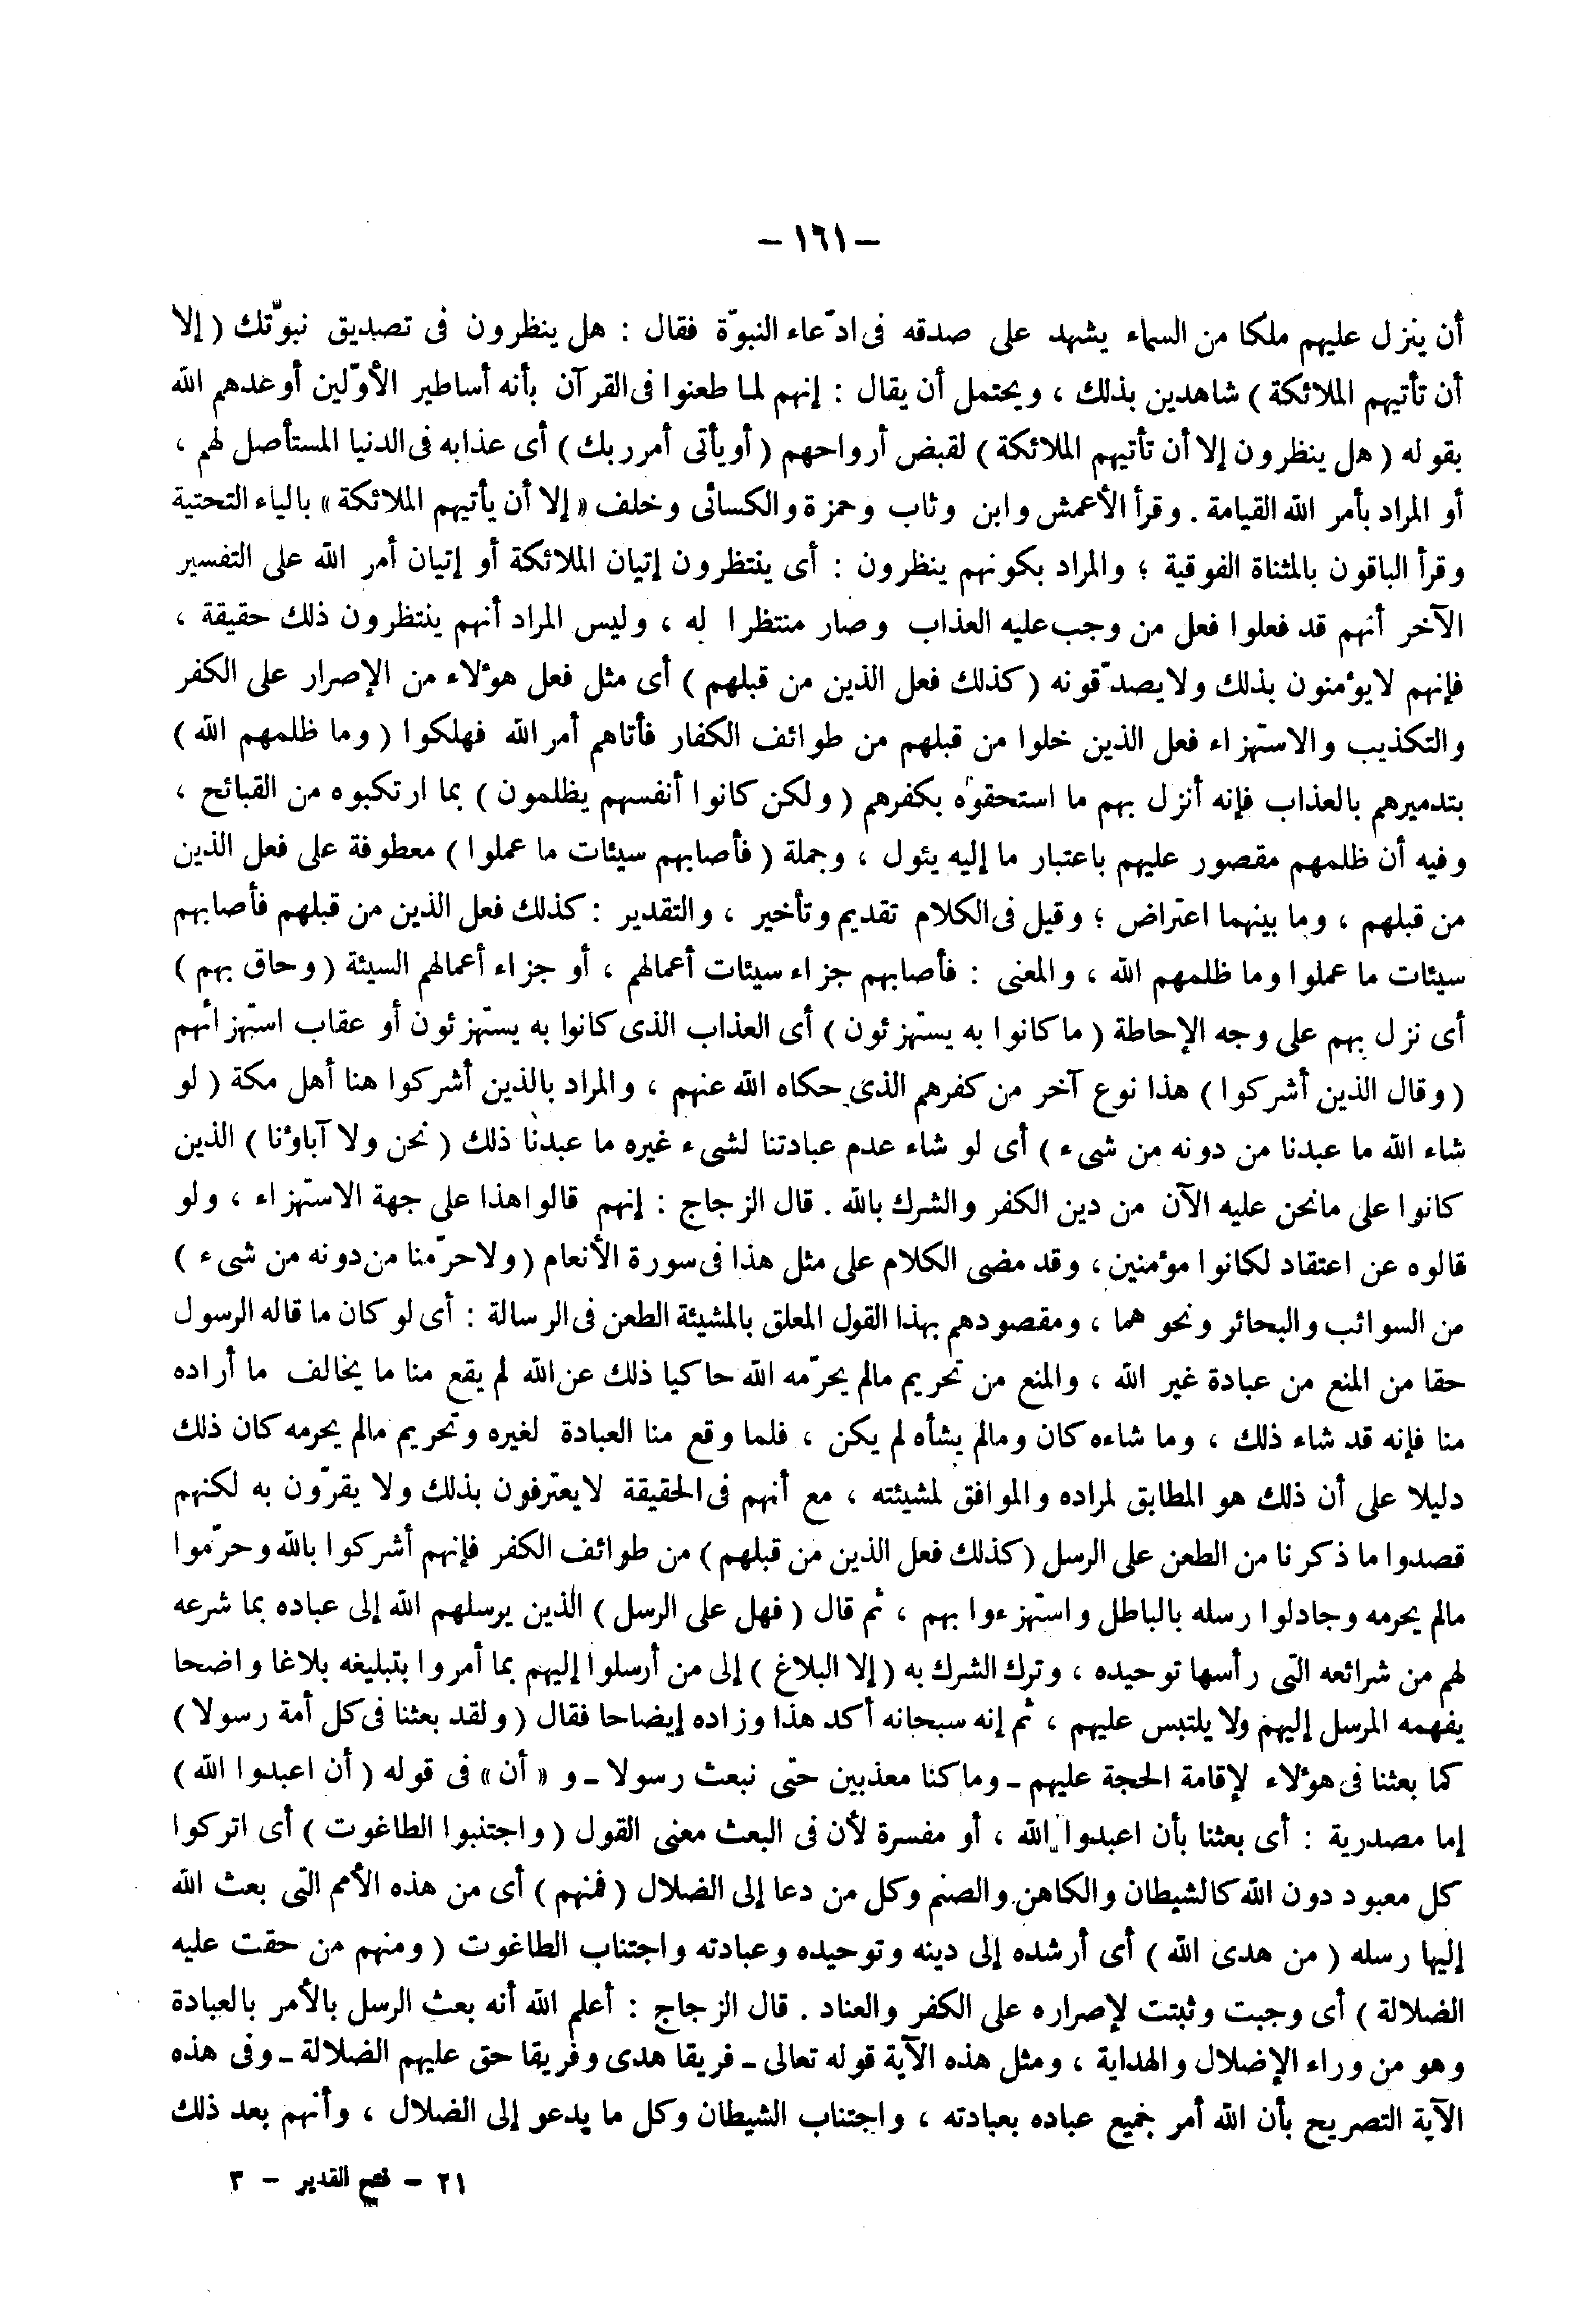 – ١٦١ –
أن ينزل عليهم ملكا من السماء يشهد على صدقه فى ادّعاء النبوّة فقال : هل ينظرون فى تصديق نبوّتك ( إلا
أن تأتيهم الملائكة ) شاهدين بذلك ، ويحتمل أن يقال : إنهم لما طعنوا فى القرآن بأنه أساطير الأوّلين أوعدهم الله
بقوله ( هل ينظرون إلا أن تأتيهم الملائكة ) لقبض أرواحهم ( أو يأتى أمر ربك ) أى عذابه فى الدنيا المستأصل لهم ،
أو المراد بأمر الله القيامة . وقرأ الأعمش وابن وثاب وحمزة والكسائى وخلف « إلا أن يأتيهم الملائكة » بالياء التحتية
وقرأ الباقون بالمثناة الفوقية ؛ والمراد بكونهم ينظرون : أى ينتظرون إتيان الملائكة أو إتيان أمر الله على التفسير
الآخر أنهم قد فعلوا فعل من وجب عليه العذاب وصار منتظرا له ، وليس المراد أنهم ينتظرون ذلك حقيقة ،
فإنهم لايؤمنون بذلك ولايصدّقونه ( كذلك فعل الذين من قبلهم ) أى مثل فعل هؤلاء من الإصرار على الكفر
والتكذيب والاستهزاء فعل الذين خلوا من قبلهم من طوائف الكفار فأتاهم أمر الله فهلكوا ( وما ظلمهم الله )
بتدميرهم بالعذاب فإنه أنزل بهم ما استحقوه بكفرهم ( ولكن كانوا أنفسهم يظلمون ) بما ارتكبوه من القبائح ،
وفيه أن ظلمهم مقصور عليهم باعتبار ما إليه يئول ، وجملة ( فأصابهم سيئات ما عملوا ) معطوفة على فعل الذين
من قبلهم ، وما بينهما اعتراض ؛ وقيل فى الكلام تقديم وتأخير ، والتقدير : كذلك فعل الذين من قبلهم فأصابهم
سيئات ما عملوا وما ظلمهم الله ، والمعنى : فأصابهم جزاء سيئات أعمالهم ، أو جزاء أعمالهم السيئة ( وحاق بهم )
أى نزل بهم على وجه الإحاطة ( ما كانوا به يستهزئون ) أى العذاب الذى كانوا به يستهزئون أو عقاب استهزائهم
( وقال الذين أشركوا ) هذا نوع آخر من كفرهم الذى حكاه الله عنهم ، والمراد بالذين أشركوا هنا أهل مكة ( لو
شاء الله ما عبدنا من دونه من شىء ) أى لو شاء عدم عبادتنا لشىء غيره ما عبدنا ذلك ( نحن ولا آباؤنا ) الذين
كانوا على مانحن عليه الآن من دين الكفر والشرك بالله . قال الزجاج : إنهم قالوا هذا على جهة الاستهزاء ، ولو
قالوه عن اعتقاد لكانوا مؤمنين ، وقد مضى الكلام على مثل هذا فى سورة الأنعام ( ولاحرّمنا من دونه من شىء )
من السوائب والبحائر ونحوهما ، ومقصودهم بهذا القول المعلق بالمشيئة الطعن فى الرسالة : أى لو كان ما قاله الرسول
حقا من المنع من عبادة غير الله ، والمنع من تحريم مالم يحرّمه الله حاكيا ذلك عن الله لم يقع منا ما يخالف ما أراده
منا فإنه قد شاء ذلك ، وما شاءه كان ومالم يشأه لم يكن ، فلما وقع منا العبادة لغيره وتحريم مالم يحرمه كان ذلك
دليلا على أن ذلك هو المطابق لمراده والموافق لمشيئته ، مع أنهم فى الحقيقة لايعترفون بذلك ولا يقرّون به لكنهم
قصدوا ما ذكرنا من الطعن على الرسل ( كذلك فعل الذين من قبلهم ) من طوائف الكفر فإنهم أشركوا بالله وحرّموا
مالم يحرمه وجادلوا رسله بالباطل واستهزءوا بهم ، ثم قال ( فهل على الرسل ) الذين يرسلهم الله إلى عباده بما شرعه
لهم من شرائعه التى رأسها توحيده ، وترك الشرك به ( إلا البلاغ ) إلى من أرسلوا إليهم بما أمروا بتبليغه بلاغا واضحا
يفهمه المرسل إليهم ولا يلتبس عليهم ، ثم إنه سبحانه أكد هذا وزاده إيضاحا فقال ( ولقد بعثنا فى كل أمة رسولا )
كما بعثنا فى هؤلاء لإقامة الحجة عليهم ـ وما كنا معذبين حتى نبعث رسولا ـ و « أن » فى قوله ( أن اعبدوا الله )
إما مصدرية : أى بعثنا بأن اعبدوا الله ، أو مفسرة لأن فى البعث معنى القول ( واجتنبوا الطاغوت ) أى اتركوا
كل معبود دون الله كالشيطان والكاهن والصنم وكل من دعا إلى الضلال ( فمنهم ) أى من هذه الأمم التى بعث الله
إليها رسله ( من هدى الله ) أى أرشده إلى دينه وتوحيده وعبادته واجتناب الطاغوت ( ومنهم من حقت عليه
الضلالة ) أى وجبت وثبتت لإصراره على الكفر والعناد . قال الزجاج : أعلم الله أنه بعث الرسل بالأمر بالعبادة
وهو من وراء الإضلال والهداية ، ومثل هذه الآية قوله تعالى ـ فريقا هدى وفريقا حق عليهم الضلالة ـ وفى هذه
الآية التصريح بأن الله أمر جميع عباده بعبادته ، واجتناب الشيطان وكل ما يدعو إلى الضلال ، وأنهم بعد ذلك
٢١ – فتح القدير – ٣